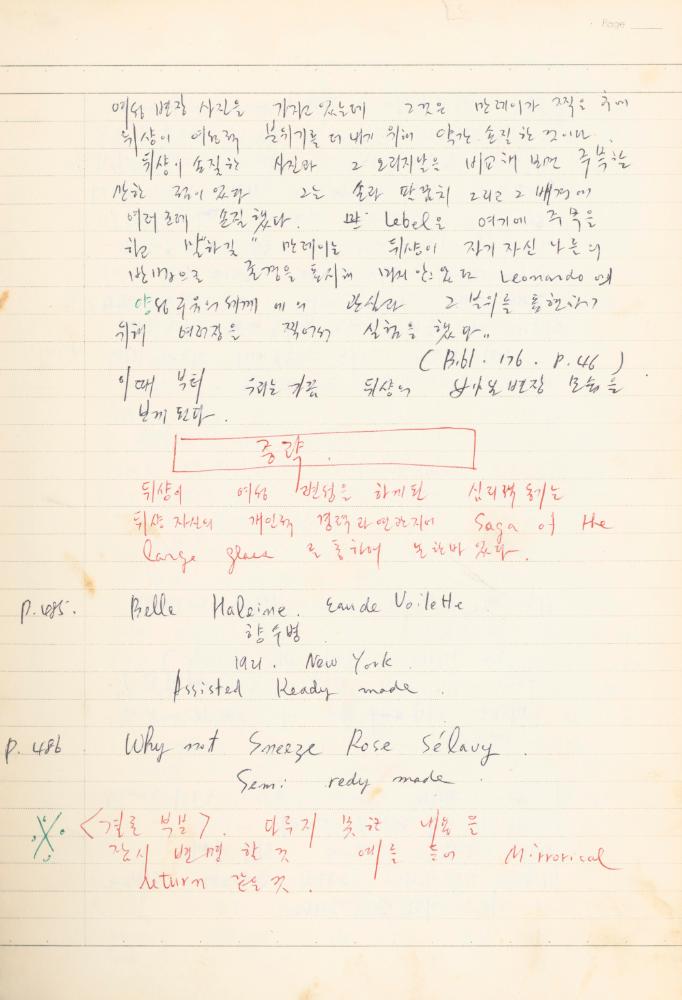 Page
여성 변장 사진을 가지고 있는데 그것은 만레이가 찍은 후에
뒤샹이 여성적 분위기를 더 내기 위해 약간 손질한 것이다.
뒤샹이 손질한 사진과 그 오리지날은 비교해 보면 주목할
만한 점이 있다 그는 손과 팔꿈치 그리고 그 배경에
여러 손질했다. Lebel은 여기에 주목을
하고 말하길 " 만레이는 뒤샹이 자기 자신 나름의
존경을 표시해 Leonardo 에
양성 에의 관심과 그 분위를 표현하기
위해 여러장을 찍어서 실험을 했다"
(Bibl. 176. P.46)
이때 부터 우리는 가끔 뒤샹의 변장 모습을
보게 된다.
중략.
뒤샹이 여성 변성을 하게된 심리적 동기는
뒤샹 자신의 개인적 경력과 연관지어 Saga of the
large glass 를 통하여 논한바 있다.
P. 485. Belle Haleine. Eau de Voilette
향수병
1921. New York.
Assisted Ready made.
P. 486 Why not Sneeze Rose Sélavy.
Semi redy made.
<결론 부분>. 다루지 못한 내용을
잠시 변명 할 것 예를 들어 Mirrorical
return 같은 것.